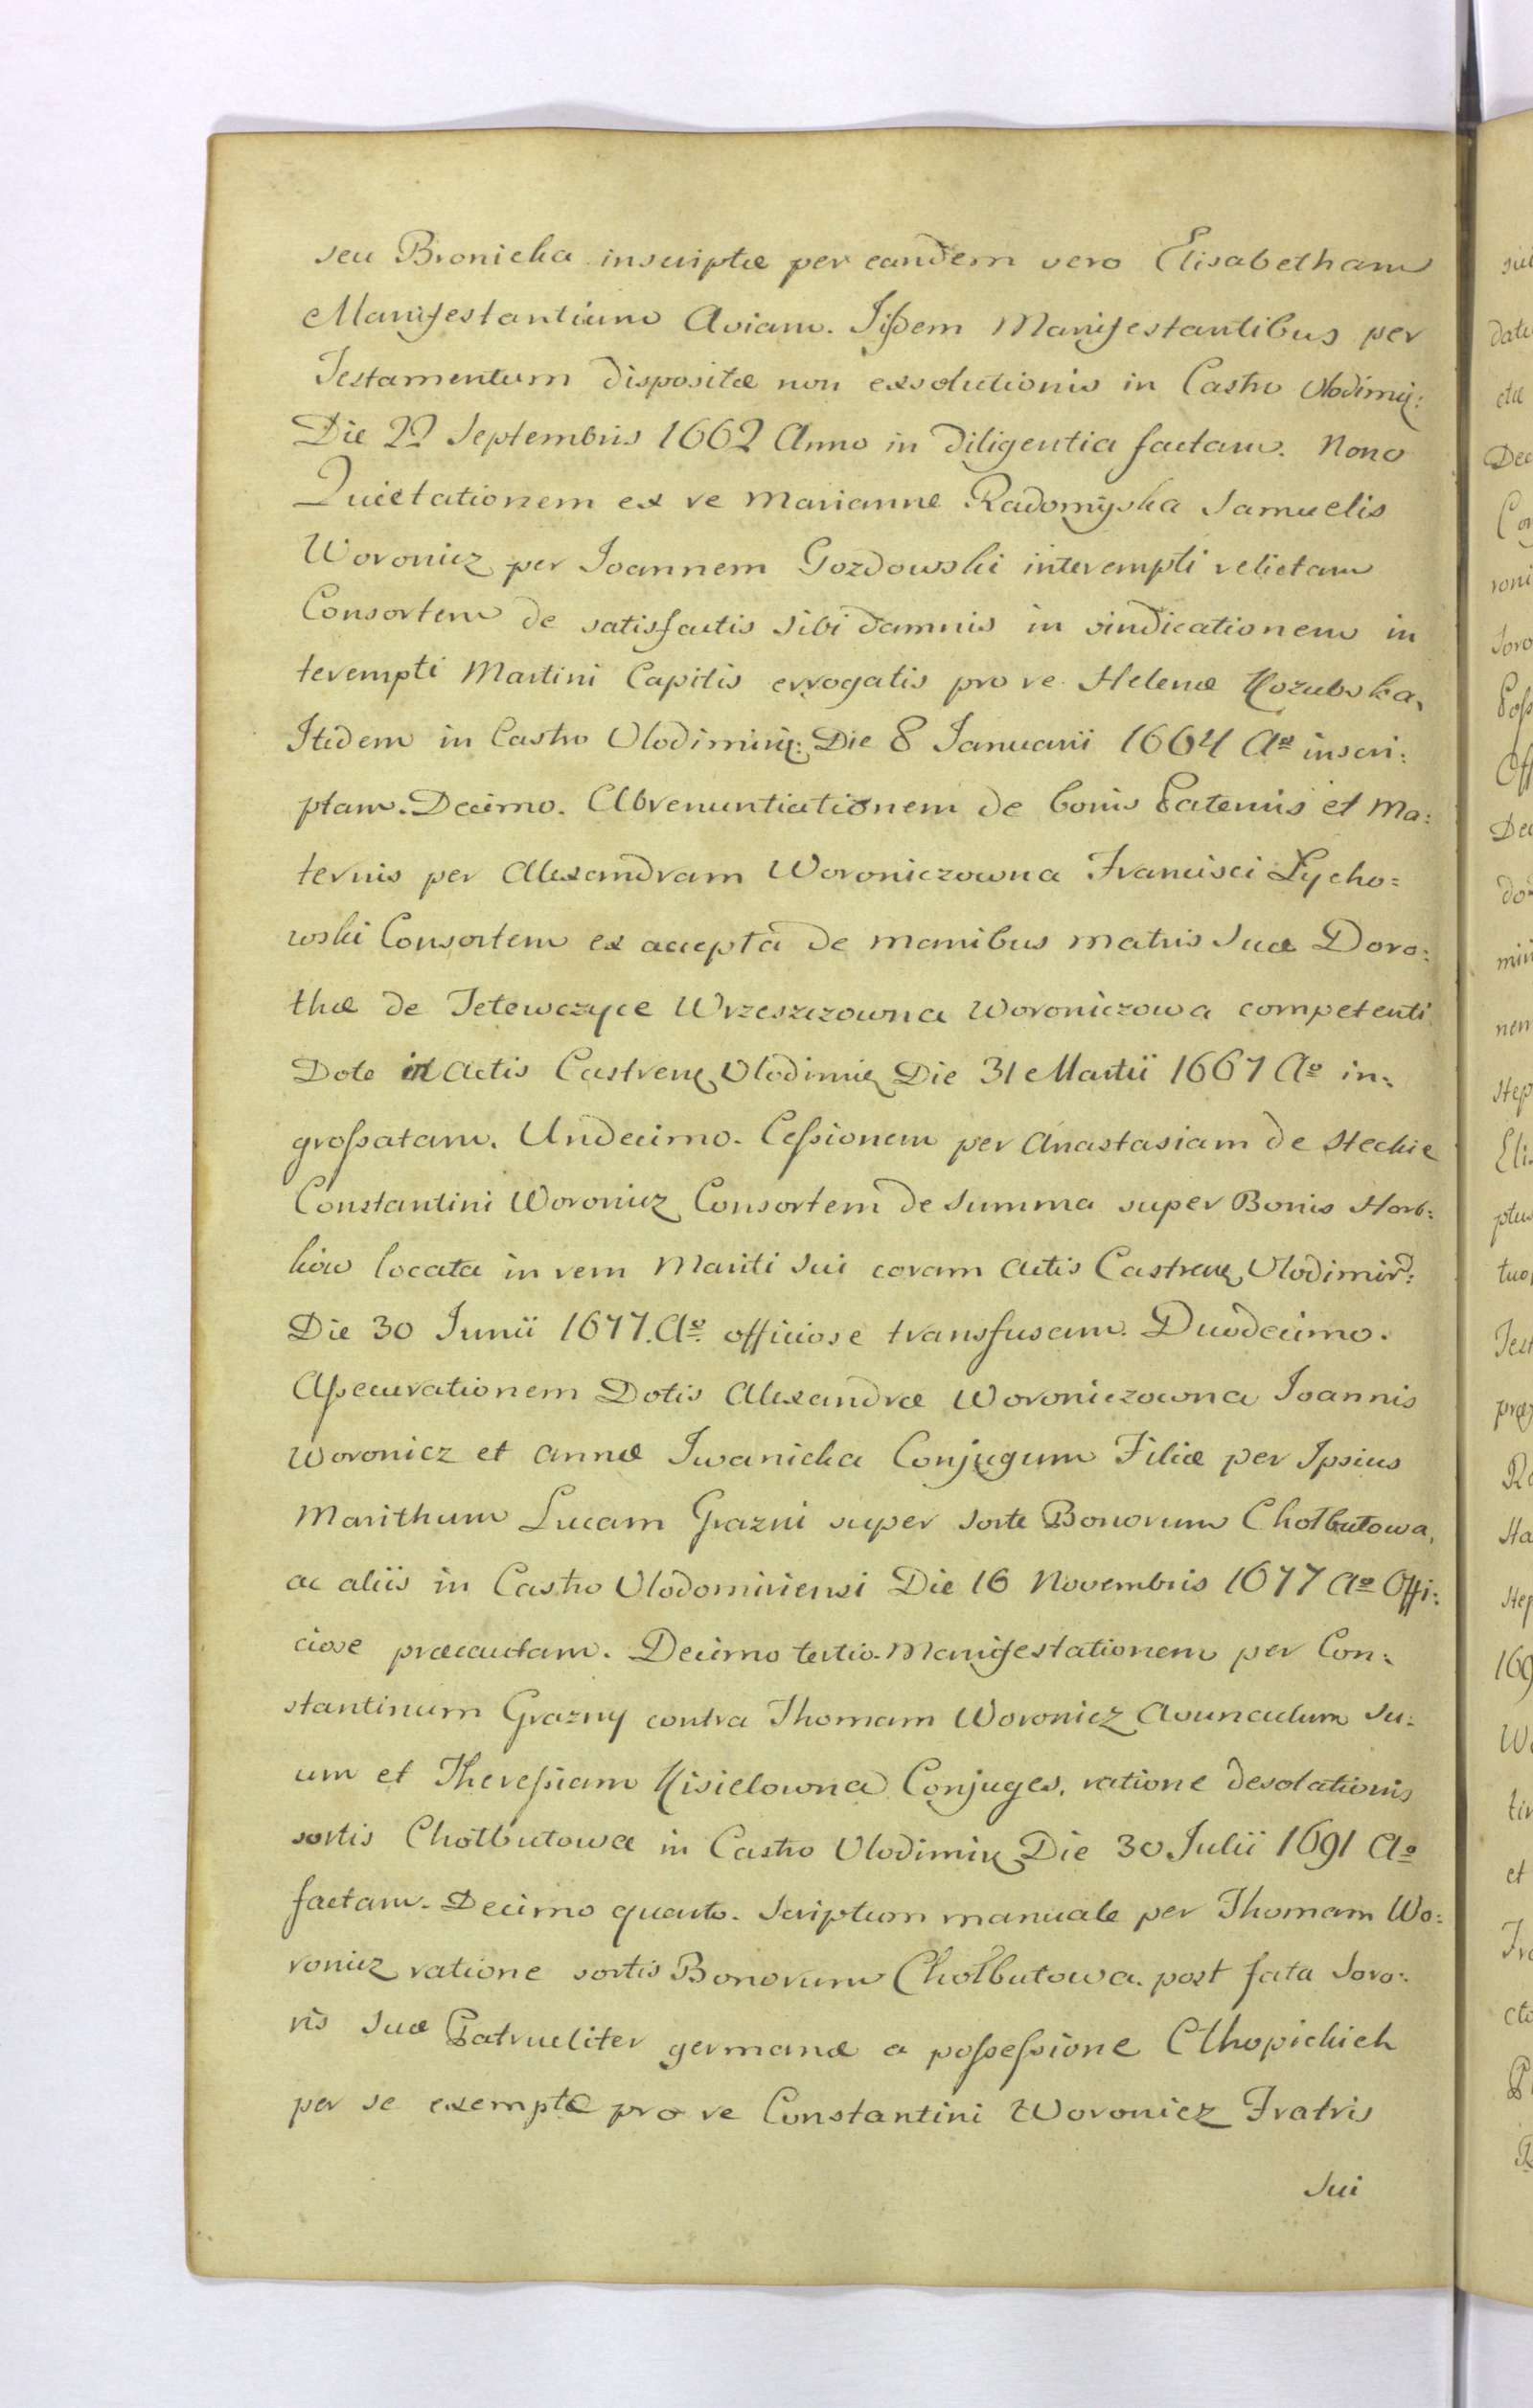 seu Bronicka inscriptæ per eandem vero Elisabetham
Manifestantium Aviam. Iißdem Manifestantibus per
Testamentum dispositæ non exsolutionis in Castro Vlodimir:
Die 22 Septembris 1662 Anno in diligentia factam. Nono
Quietationem ex re Marianne Radomÿska Samuelis
Woronicz per Joannem Gozdowski interempti relictam
Consortem de satisfactis sibi damnis in vindicationem in
terempti Martini Capitis errogatis pro re Helenæ Kozubska,
Itidem in Castro Vlodimirien: Die 8 Januarii 1664 Aº inscri:
ptam. Decimo. Abrenuntiationem de bonis Paternis et Ma:
ternis per Alexandram Woroniczowna Francisci Łycho=
wski Consortem ex accepta de manibus matris suæ Doro:
thæ de Tetewczyce Wrzeszczowna Woroniczowa competenti
Dote in Actis Castren Vlodimir Die 31 Martii 1667 Aº in:
großatam. Undecimo. Ceßionem per Anastasiam de Steckie
Constantini Woronicz Consortem de summa super Bonis Horb:
ków locata in rem Mariti sui coram Actis Castren Vlodimir:
Die 30 Junii 1677. Aº officiose transfusam. Duodecimo.
Aßecurationem Dotis Alexandræ Woroniczowna Joannis
Woronicz et Annæ Iwanicka Conjugum Filiæ per Ipsius
Marithum Lucam Grazni super sorte Bonorum Chołbutowa,
ac aliis in Castro Vlodomiriensi Die 16 Novembris 1677 Aº Offi:
ciose præcautam. Decimo tertio. Manifestationem per Con:
stantinum Grazny contra Thomam Woronicz Avunculum su:
um et Thereßiam Kisielowna Conjuges, ratione desolationis
sortis Chołbutowa in Castro Vlodimir Die 30 Julii 1691 Aº
factam. Decimo quarto. Scriptum manuale per Thomam Wo:
ronicz ratione sortis Bonorum Chołbutowa. post fata Soro:
ris suæ Patrueliter germanæ a poßeßione Cthopickich
per se exemptæ pro re Constantini Woronicz Fratris
sui